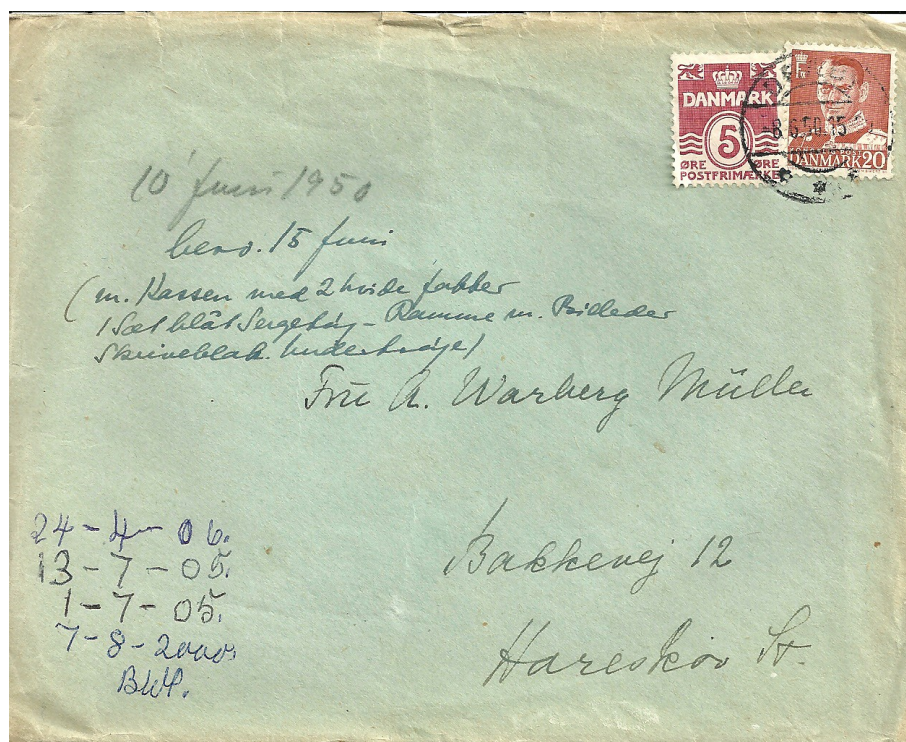 DANMARK
5
ØRE ØRE
POSTFRIMÆRKE
DANMARK 20
-8.6.50.15
10 Juni 1950
besv. 15 Juni
(m. Kassen med 2 hvide
1 Sæt blåt Sergetøj - Ramme m. Billeder
Skriveblok. Undertrøje)
Fru A. Warberg Müller
Bakkevej 12
Hareskov St.
24-4-06.
13-7-05.
1-7-05.
7-8-2000
BWP.